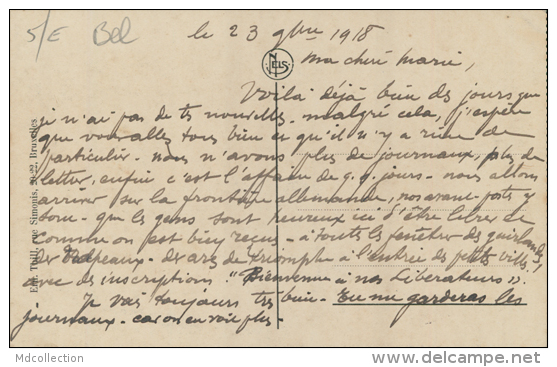 S/E Bel
le 23 9bre 1918
NELS
Ma chère Marie,
Voilà déjà bien des jours que
je n'ai pas de tes nouvelles - malgré cela, j'espère
que vous allez tous bien et qu'il n'y a rien de
particulier - nous n'avons plus de journaux, plus de
lettre, enfin c'est l'affaire de q.q. jours - nous allons
arriver sur la frontière allemande, nos avant-postes y
sont - que les gens sont heureux ici d'être libre et
comme on est bien reçus - à toutes les fenêtres des guirlandes,
des Drapeaux - des arcs de triomphe à l'entrée des petits villes -
avec des inscriptions : "Bienvenue à nos Libérateurs".
Je vais toujours très bien - Tu me garderas les
journaux - car on en voit plus -
Ern. Thill, rue Simonis, 22, Bruxelles
Mdcollection
delcampe.net